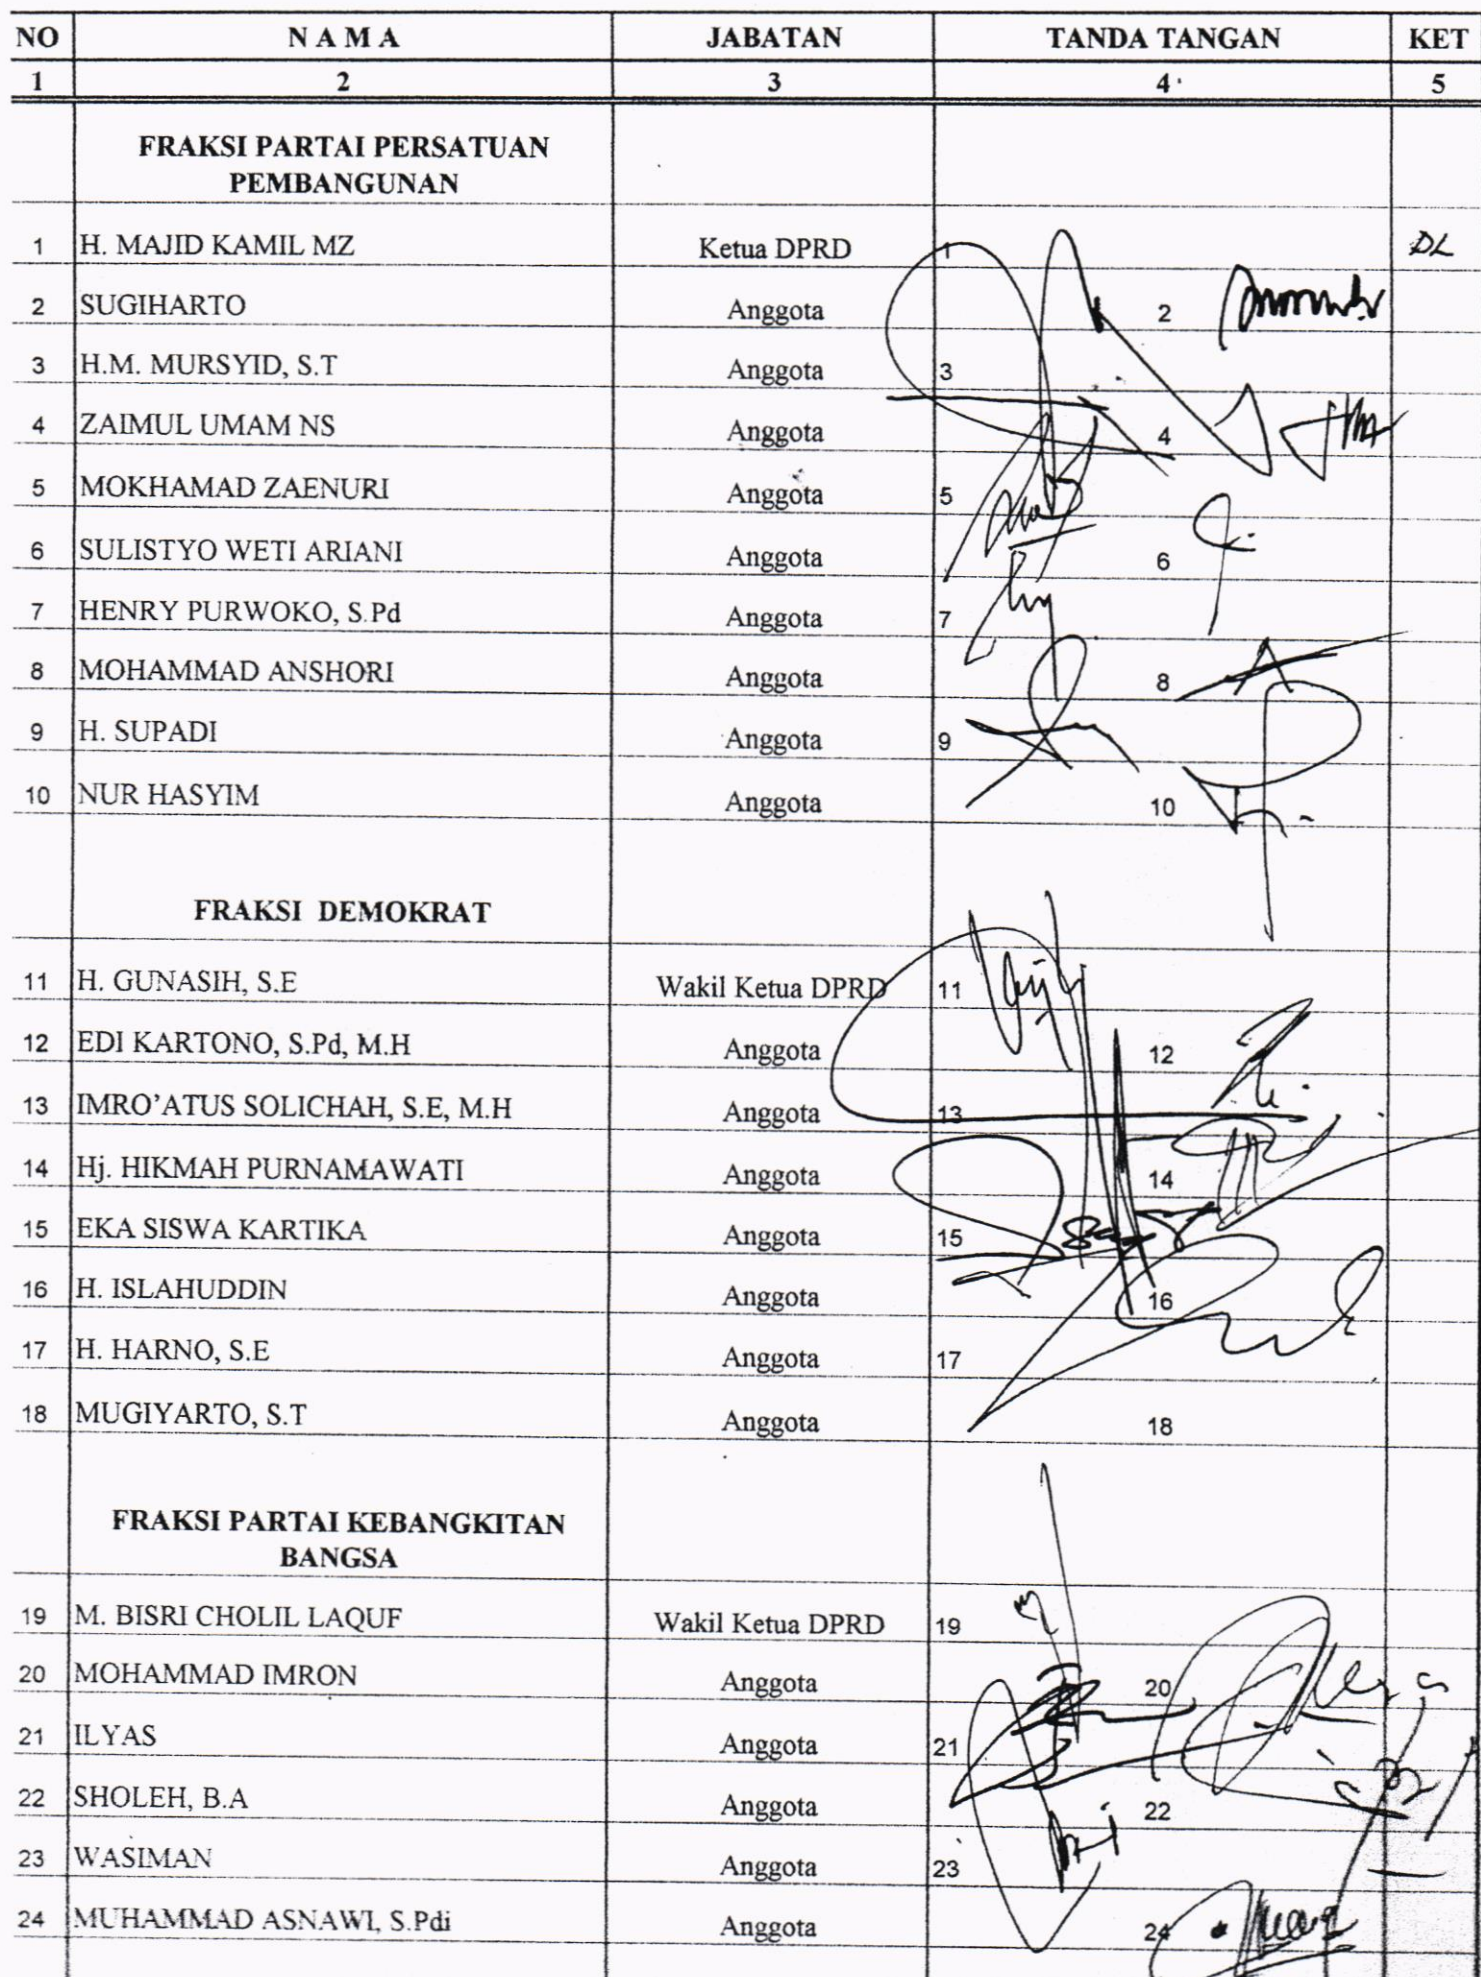 NO NAMA JABATAN TANDA TANGAN KET
1 2 3 4 5
FRAKSI PARTAI PERSATUAN
PEMBANGUNAN
1 H. MAJID KAMIL MZ Ketua DPRD 1 DL
2 SUGIHARTO Anggota 2
3 H.M. MURSYID, S.T Anggota 3
4 ZAIMUL UMAM NS Anggota 4
5 MOKHAMAD ZAENURI Anggota 5
6 SULISTYO WETI ARIANI Anggota 6
7 HENRY PURWOKO, S.Pd Anggota 7
8 MOHAMMAD ANSHORI Anggota 8
9 H. SUPADI Anggota 9
10 NUR HASYIM Anggota 10
FRAKSI DEMOKRAT
11 H. GUNASIH, S.E Wakil Ketua DPRD 11
12 EDI KARTONO, S.Pd, M.H Anggota 12
13 IMRO'ATUS SOLICHAH, S.E, M.H Anggota 13
14 Hj. HIKMAH PURNAMAWATI Anggota 14
15 EKA SISWA KARTIKA Anggota 15
16 H. ISLAHUDDIN Anggota 16
17 H. HARNO, S.E Anggota 17
18 MUGIYARTO, S.T Anggota 18
FRAKSI PARTAI KEBANGKITAN
BANGSA
19 M. BISRI CHOLIL LAQUF Wakil Ketua DPRD 19
20 MOHAMMAD IMRON Anggota 20
21 ILYAS Anggota 21
22 SHOLEH, B.A Anggota 22
23 WASIMAN Anggota 23
24 MUHAMMAD ASNAWI, S.Pdi Anggota 24